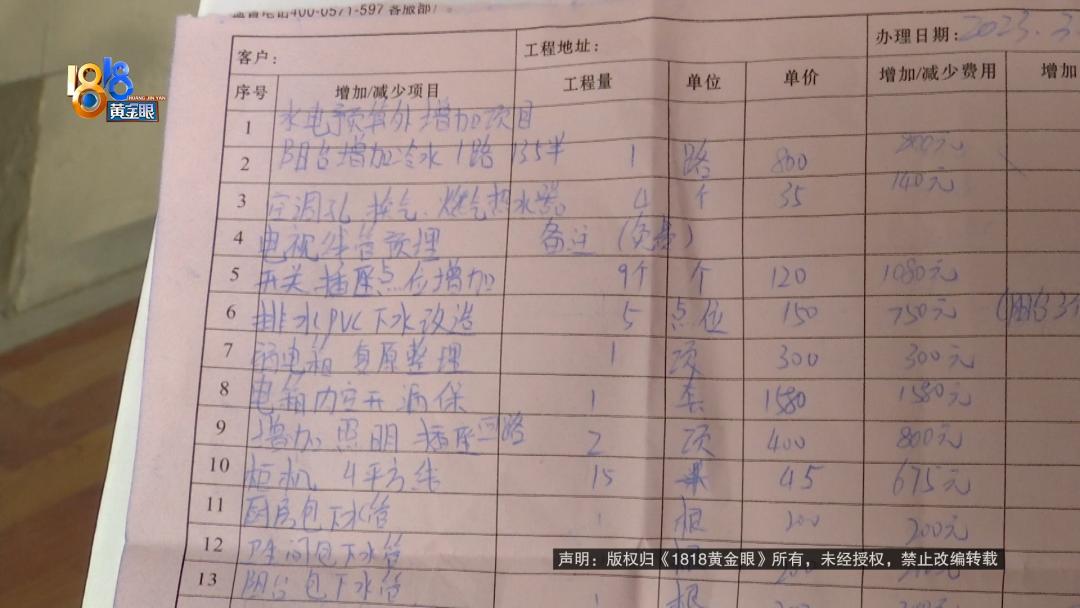 电话400-0571-597 客服部
1818
HUANG JIN YAN
黄金眼
客户： 工程地址： 办理日期：2023.3.
序号 增加/减少项目 工程量 单位 单价 增加/减少费用 增加
1 水电预算外增加项目
2 阳台增加冷水1路 135半 1 路 800 800元
3 空调孔 换气、燃气热水器。 4 个 35 140元
4 电视线管预埋 备注（免费）
5 开关插座点位增加 9个 个 120 1080元
6 排水PVC下水改造 5 点位 150 750元
7 弱电箱 复原整理 1 项 300 300元
8 电箱内空开漏保 1 套 1580 1580元
9 增加照明插座回路 2 项 400 800元
10 柜机 4平方线 15 米 45 675元
11 厨房包下水管 1 根 200 200元
12 卫生间包下水管 200
13 阳台包下水管 1 根
声明：版权归《1818黄金眼》所有，未经授权，禁止改编转载